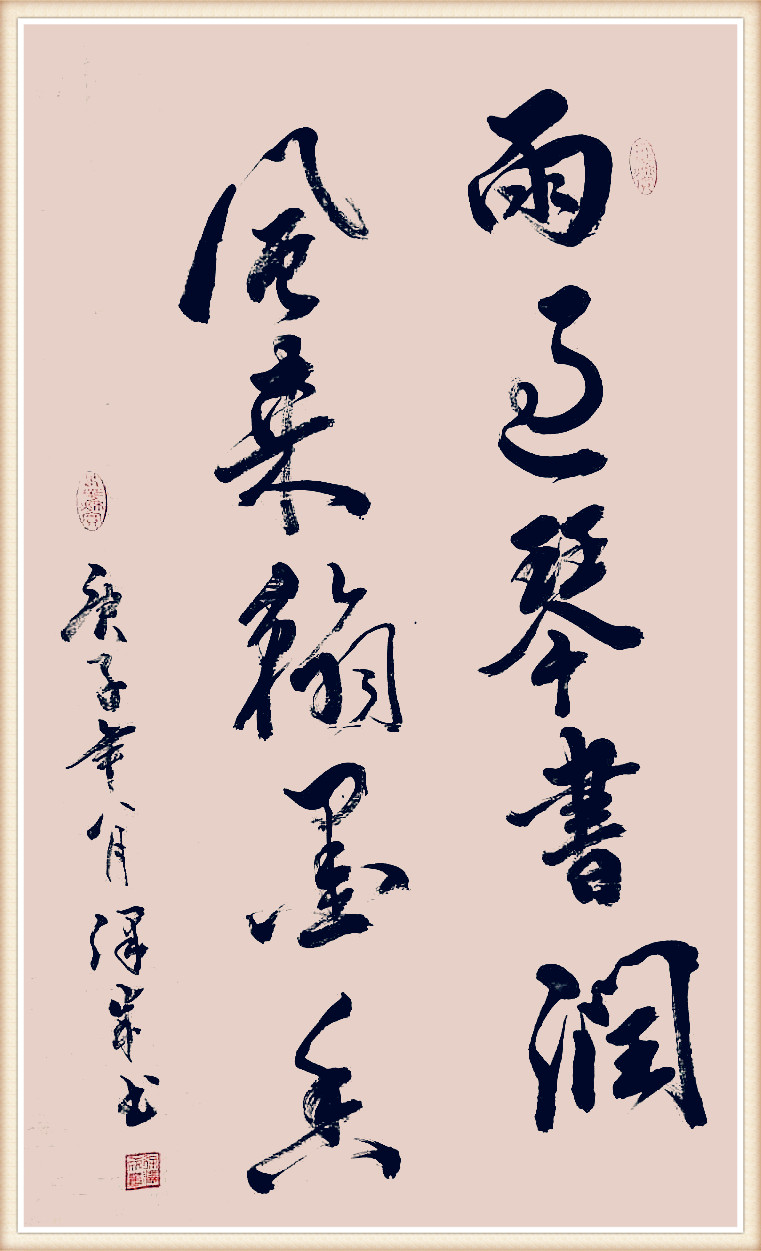 雨過琴書潤
風來翰墨香
庚子年八月澤峯书